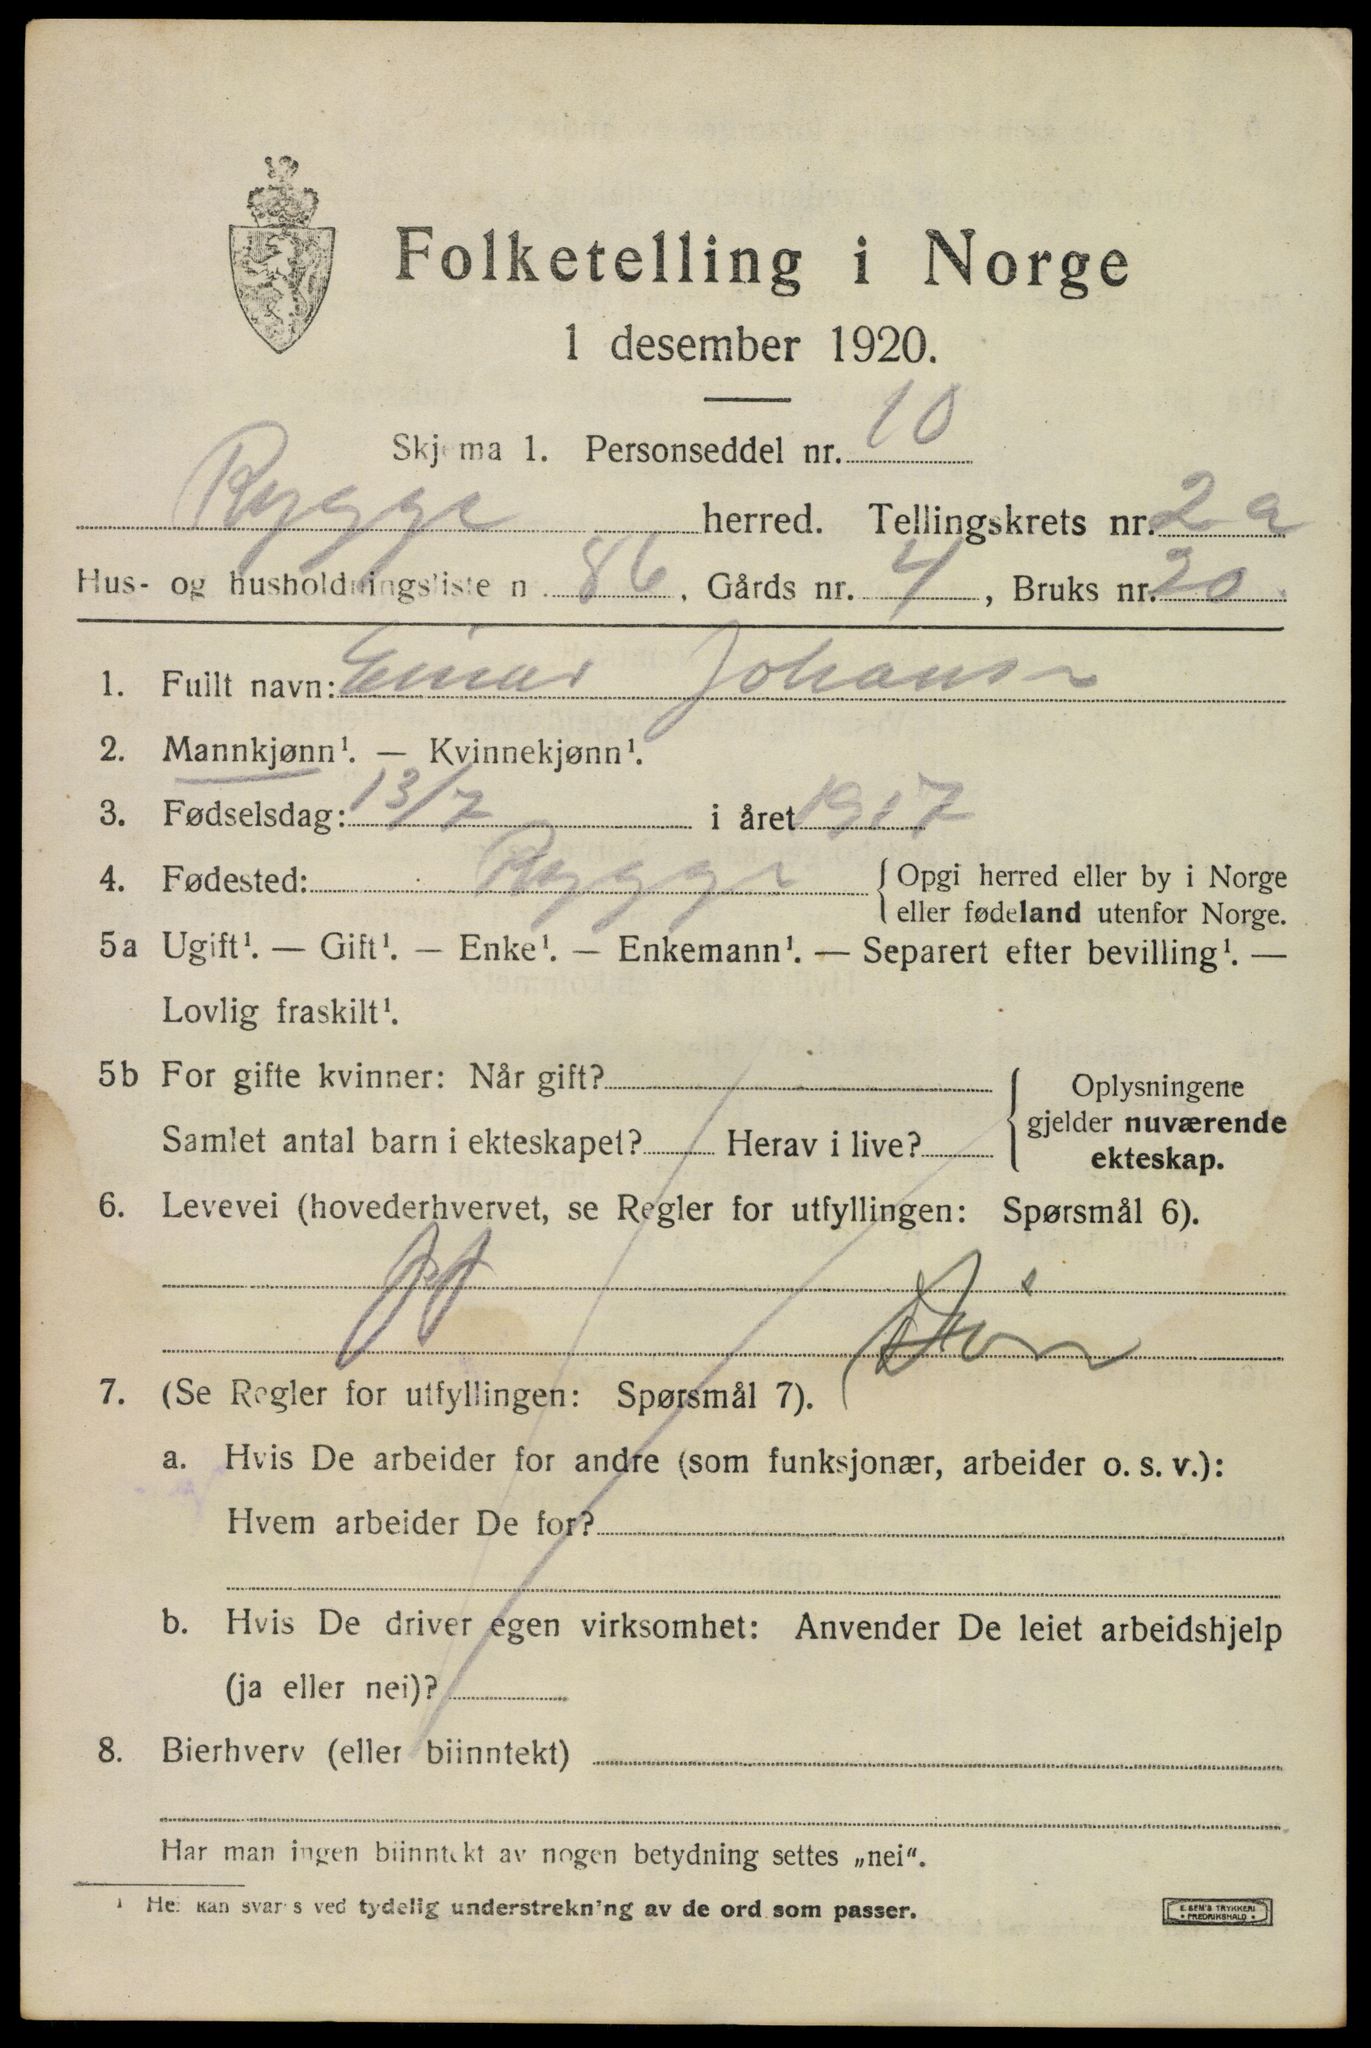 Folketelling i Norge
1 desember 1920.
Skjema 1. Personseddel nr. 10
Rygge herred. Tellingskrets nr. 2 a
Hus- og husholdningsliste n . 86, Gårds nr. 4, Bruks nr. 20.
1. Fullt navn: Einar Johans
2. Mannkjønn¹. — Kvinnekjønn¹.
3. Fødselsdag: 13/7 i året 1917
4. Fødested: Rygge { Opgi herred eller by i Norge
eller fødeland utenfor Norge.
5a Ugift¹. — Gift¹. — Enke¹. — Enkemann¹. — Separert efter bevilling¹. —
Lovlig fraskilt¹.
5b For gifte kvinner: Når gift?
Samlet antal barn i ekteskapet? Herav i live?
Oplysningene
gjelder nuværende
ekteskap.
6. Levevei (hovederhvervet, se Regler for utfyllingen: Spørsmål 6).
7. (Se Regler for utfyllingen: Spørsmål 7).
a. Hvis De arbeider for andre (som funksjonær, arbeider o. s. v.):
Hvem arbeider De for?
b. Hvis De driver egen virksomhet: Anvender De leiet arbeidshjelp
(ja eller nei)?
8. Bierhverv (eller biinntekt)
Har man ingen biinntekt av nogen betydning settes „nei“.
¹ Her kan svares ved tydelig understrekn'ng av de ord som passer.
E. SEM'S TRYKKERI
• FREDRIKSHALD •